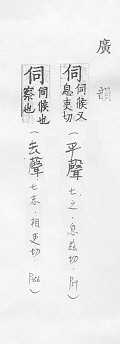 廣韻
伺 伺候又息吏切 (平聲 七.之.息茲切.P.)
伺 伺候也察也 (去聲 七志.相吏切.P.356)